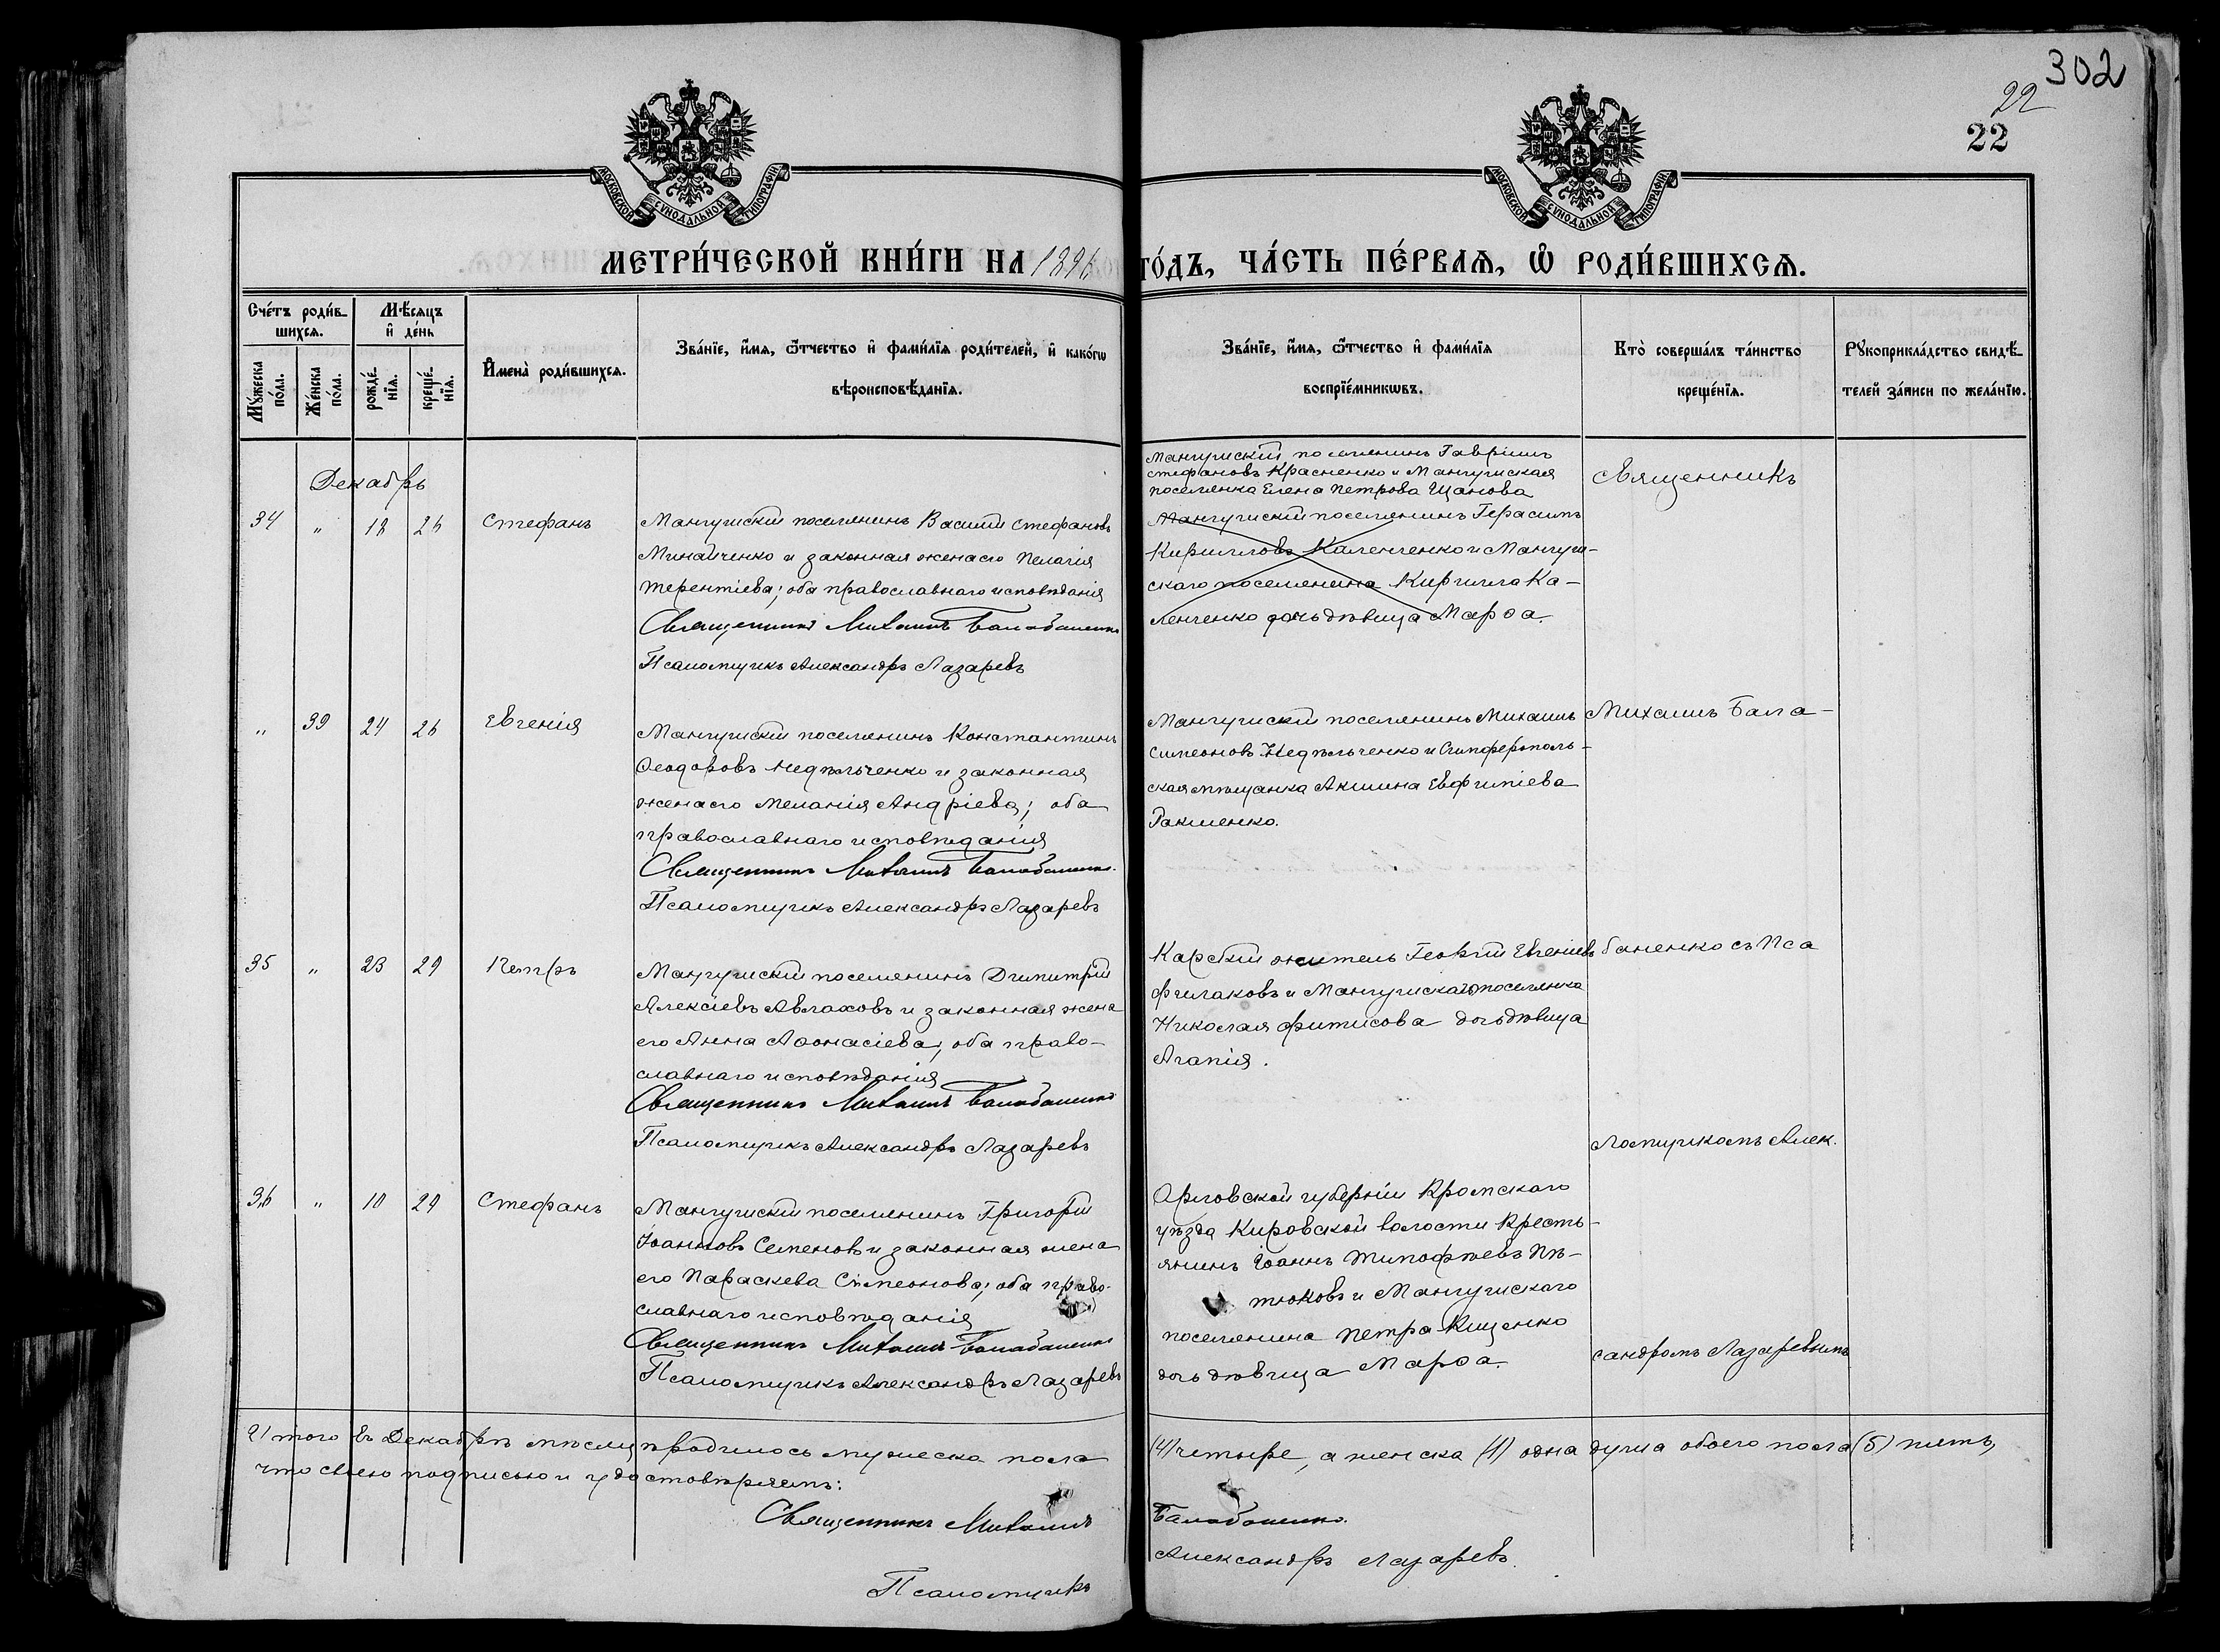 302
22
22
МОСКОВСКОЙ СУНОДАЛЬНОЙ ТИПОГРАФІИ
МОСКОВСКОЙ СУНОДАЛЬНОЙ ТИПОГРАФІИ
МЕТРИ́ЧЕСКОЙ КНИ́ГИ НА 1896 ГО́ДЪ, ЧА́СТЬ ПЕ́РВАѦ, Ѡ҆ РОДИ́ВШИХСѦ.
Сче́тъ роди́в-
шихсѧ.
Мꙋ́жеска по́ла.
Же́нска по́ла.
Мѣ́сѧцъ
и҆ де́нь
рожде́-нїѧ.
креще́-нїѧ.
И҆мена̀ роди́вшихсѧ.
Зва́нїе, и҆́мѧ, ѻ҆́тчество и҆ фами́лїѧ роди́телей, и҆ како́гѡ
вѣроисповѣ́данїѧ.
Зва́нїе, и҆́мѧ, ѻ҆́тчество и҆ фами́лїѧ
воспрїе́мникѡвъ.
Кто̀ соверша́лъ та́инство
креще́нїѧ.
Рꙋкоприкла́дство свидѣ́-
телей за́писи по жела́нїю.
Декабрь
34 " 18 26 Стефанъ
Мангушскій поселянинъ Василій Стефановъ
Минайченко и законная жена его Пелагія
Терентіева; оба православнаго исповѣданія
Священникъ Михаилъ Балабаненко
Псаломщикъ Александръ Лазаревъ
Мангушскій поселянинъ Гавріилъ
Стефановъ Красненко и Мангушская
поселянка Елена Петрова Щанова
Мангушскій поселянинъ Герасимъ
Кирилловъ Каленченко и Мангуш-
скаго поселянина Кирилла Ка-
ленченко дочь дѣвица Марѳа.
Священникъ
" 39 24 26 Евгенія
Мангушскій поселянинъ Константинъ
Ѳеодоровъ Недѣльченко и законная
жена его Меланія Андріева; оба
православнаго исповѣданія
Священникъ Михаилъ Балабаненко.
Псаломщикъ Александръ Лазаревъ
Мангушскій поселянинъ Михаилъ
Симеоновъ Недѣльченко и Симферополь-
ская мѣщанка Акилина Евфиміева
Михаилъ Бала-
35 " 23 29 Петръ
Мангушскій поселянинъ Димитрій
Алексіевъ Авлаховъ и законная жена
его Анна Аѳонасіева; оба право-
славнаго исповѣданія
Священникъ Михаилъ Балабаненко
Псаломщикъ Александръ Лазаревъ
Карскій житель Георгій Евгеніевъ
Филаковъ и Мангушскаго поселянина
Николая Фитисова дочь дѣвица
Агапія.
баненко съ Пса
ломщикомъ Алек.
36 " 10 29 Стефанъ
Мангушскій поселянинъ Григорій
Іоанновъ Семеновъ и законная жена
его Параскева Симеонова; оба право-
славнаго исповѣданія
Священникъ Михаилъ Балабаненко
Псаломщикъ Александръ Лазаревъ
Орловской губерніи Кромскаго
уѣзда Кировской волости Кресть-
янинъ Іоаннъ Тимофѣевъ Пѣ-
тюковъ и Мангушскаго
поселянина Петра Кищенко
дочь дѣвица Марѳа.
сандромъ Лазаревымъ
Итого въ Декабрѣ мѣсяцѣ родилось мужеска пола (4) четыре, а женска (1) одна душа обоего пола (5) пять,
что своею подписью и удостовѣряемъ:
Священникъ Михаилъ Балабаненко.
Псаломщикъ Александръ Лазаревъ.